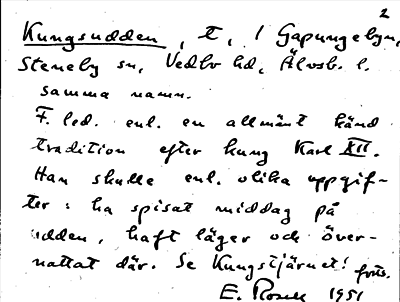 2
Kungsudden, t, / Gapungebyn,
Steneby sn, Vedbo hd, Älvsb. l.
samma namn.
F. led. enl. en allmänt känd
tradition efter kung Karl XII.
Han skulle enl. olika uppgif-
ter: ha spisat middag på
udden, haft läger och över-
nattat där. Se Kungstjärnet!
forts.
E. 1951